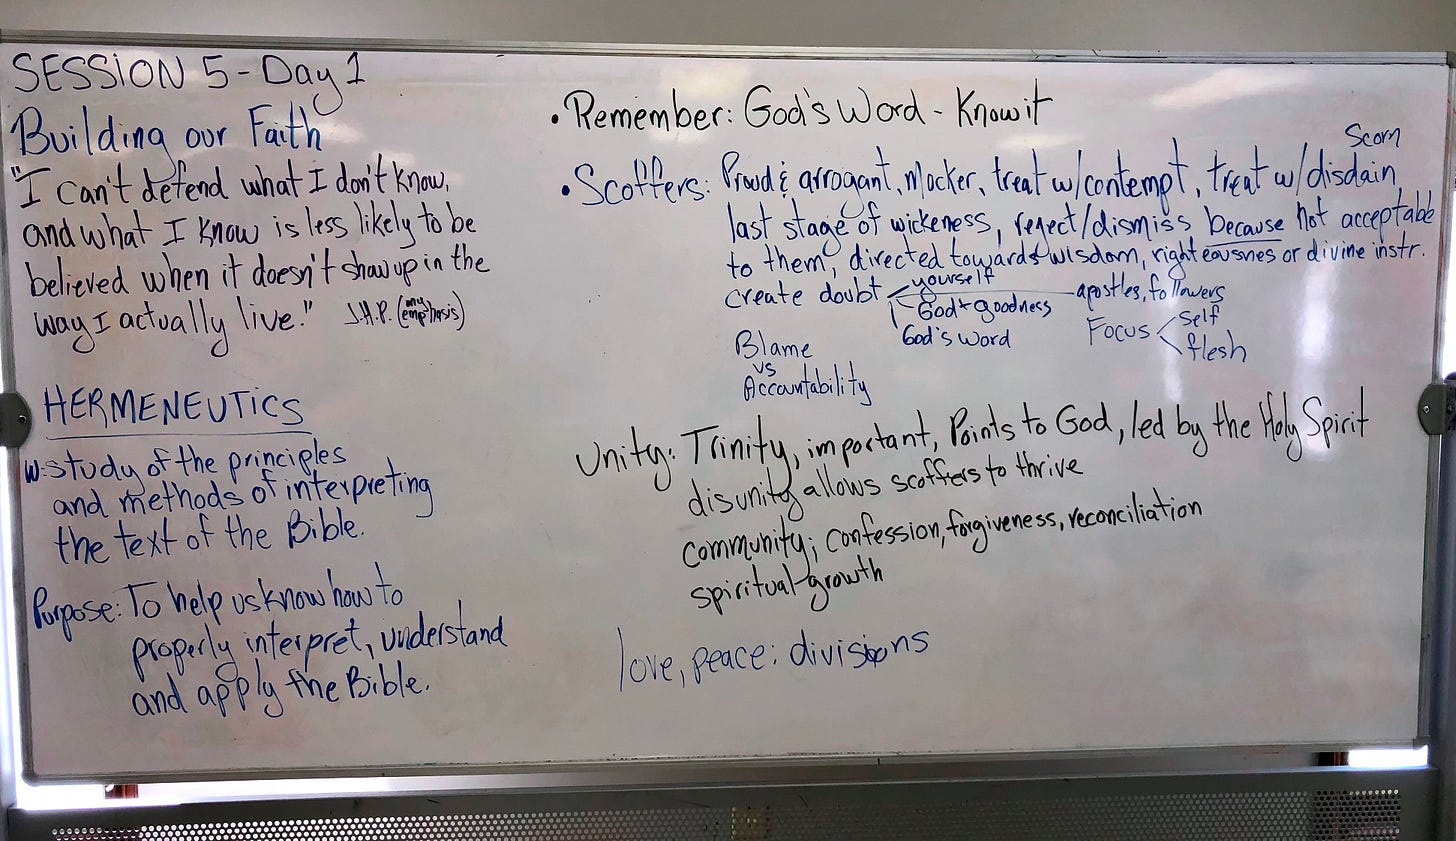 SESSION 5 - Day 1
Building our Faith
"I can't defend what I don't know,
and what I know is less likely to be
believed when it doesn't show up in the
way I actually live." J.H.P. (my emphasis)
HERMENEUTICS
W: study of the principles
and methods of interpreting
the text of the Bible.
Purpose: To help us know how to
properly interpret, understand
and apply the Bible.
• Remember: God's Word - Know it
Scorn
• Scoffers: Proud & arrogant, mocker, treat w/contempt, treat w/disdain,
last stage of wickeness, reject/dismiss because not acceptable
to them, directed towards wisdom, righteousnes or divine instr.
create doubt yourself apostles, followers
God + goodness
God's word
Focus self
flesh
Blame
vs
Accountability
Unity: Trinity, important, Points to God, led by the Holy Spirit
disunity allows scoffers to thrive
community; confession, forgiveness, reconciliation
spiritual growth
love, peace: divisions